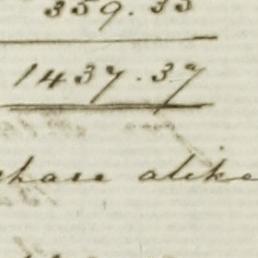 359.33
1437.37
share alike